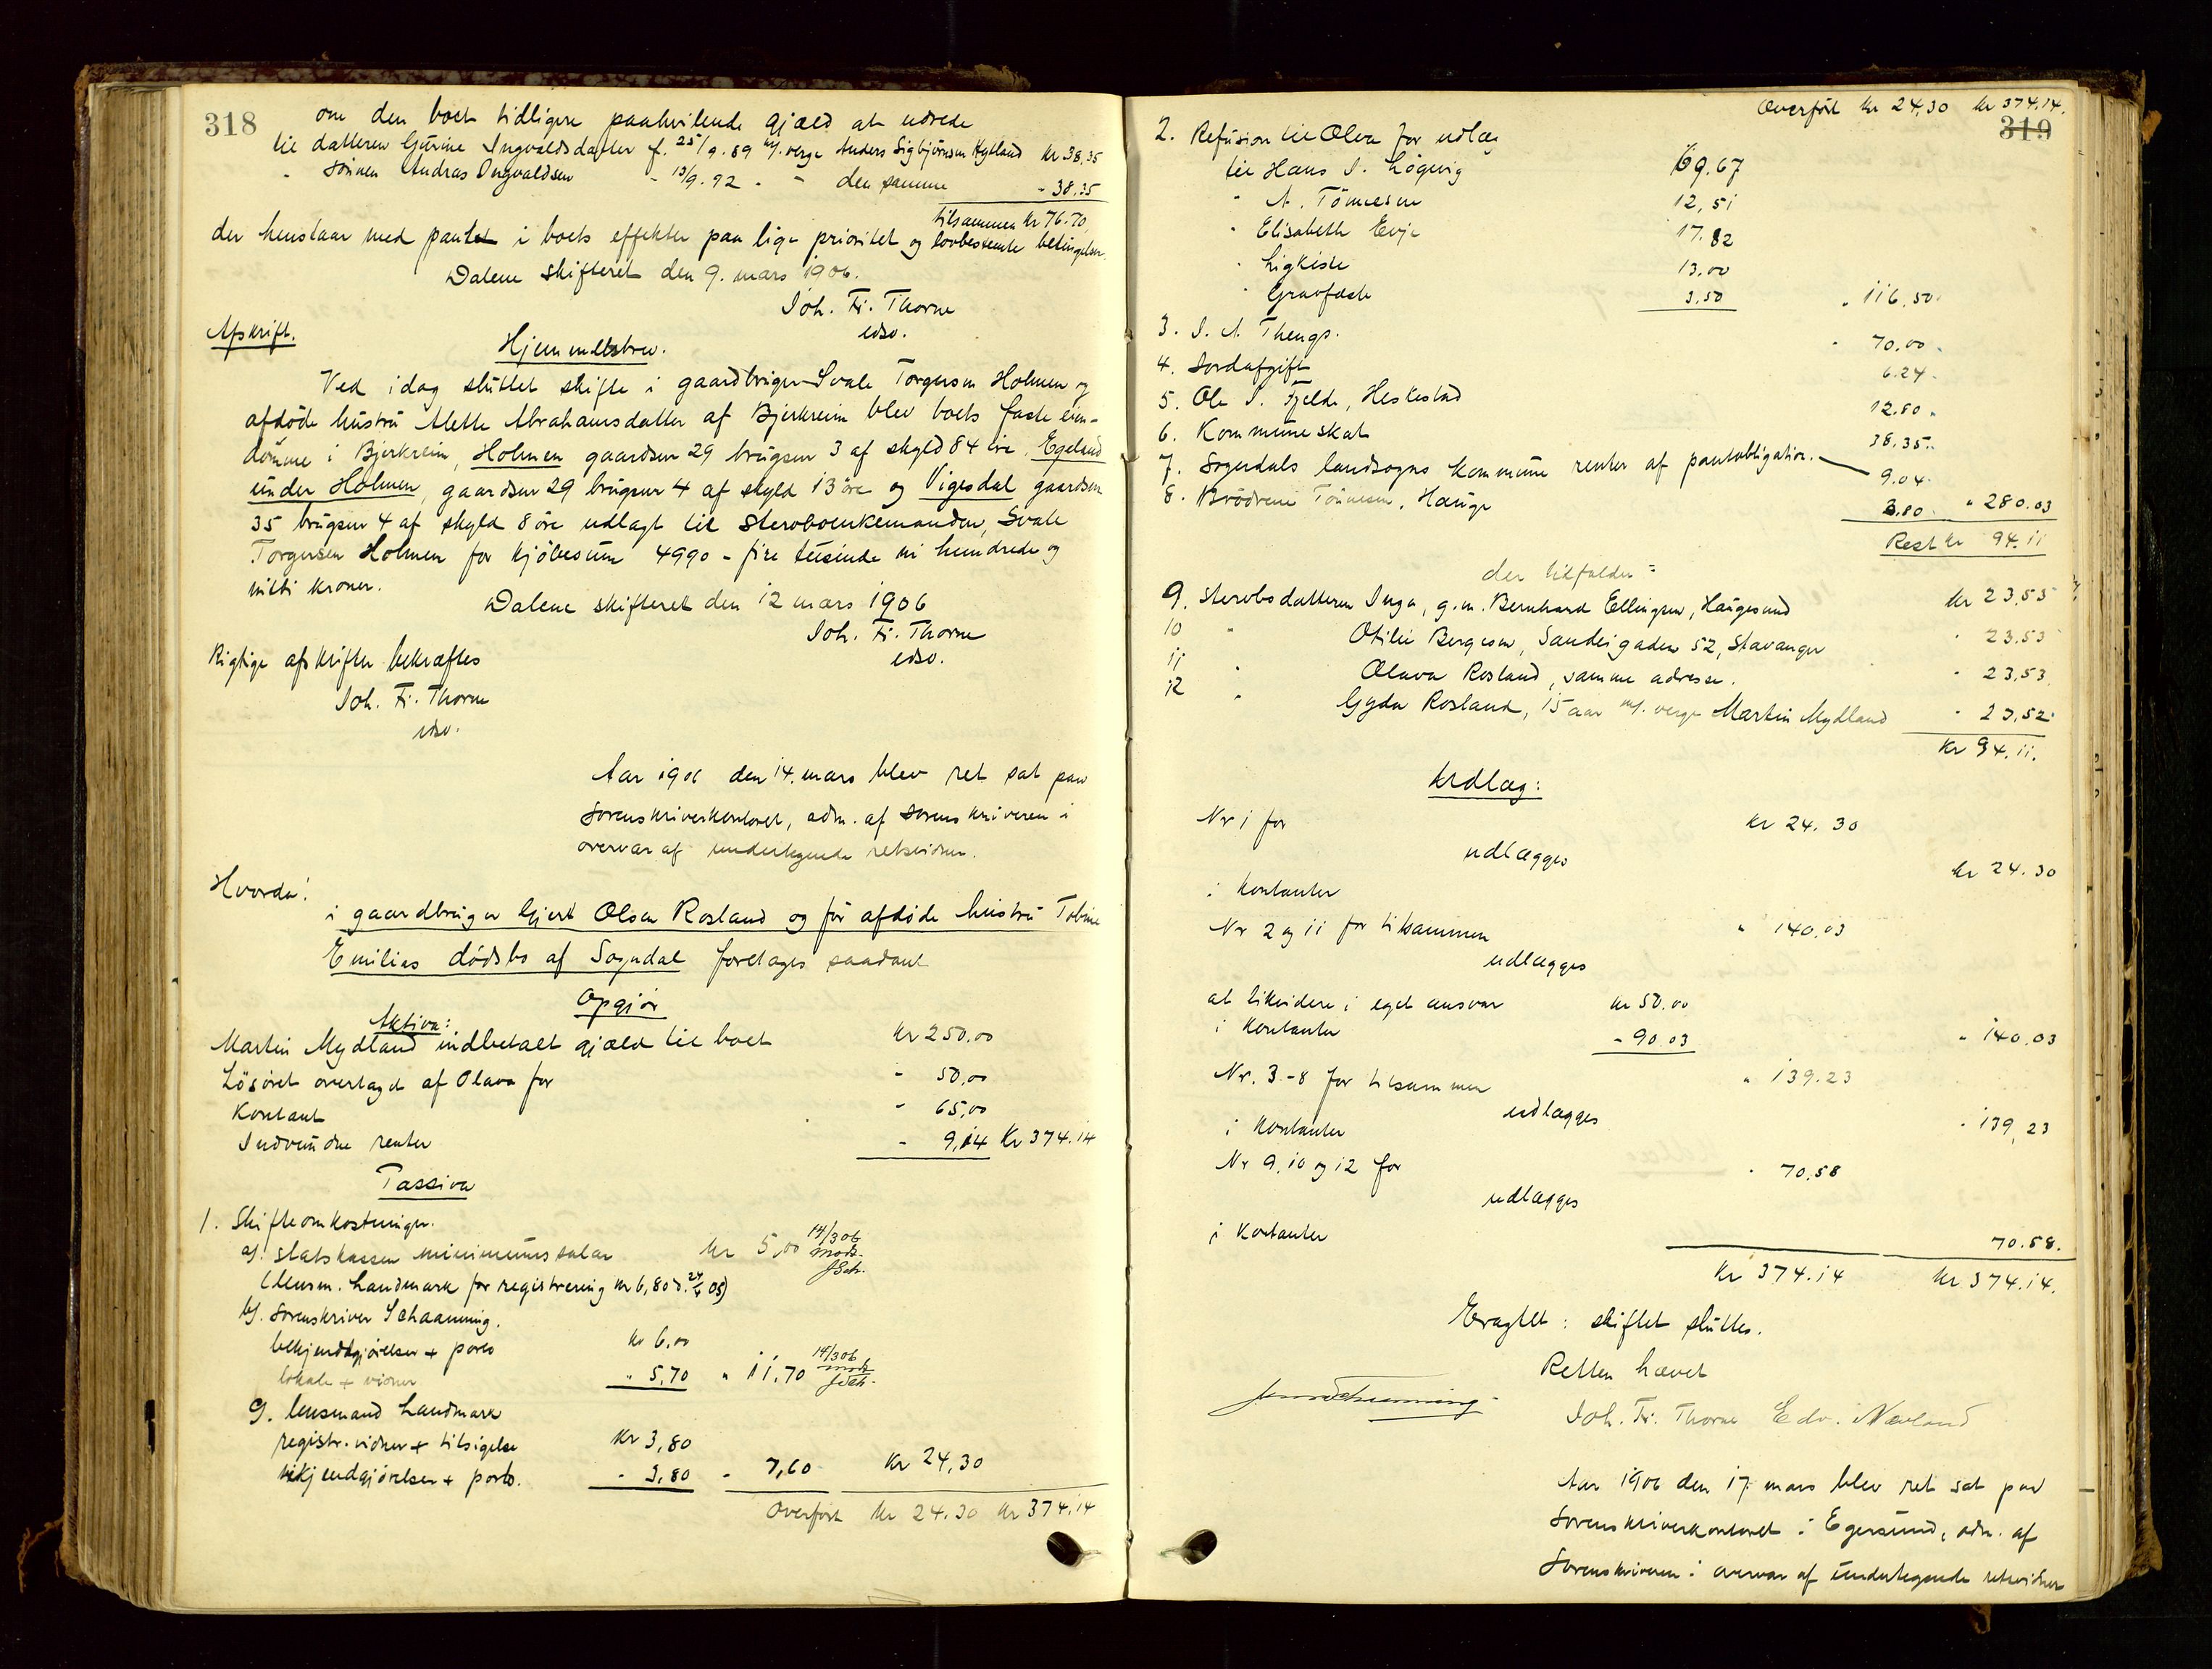 318
om den boet tidligere paahvilende gjæld at udrede
til datteren Gurine Ingvaldsdatter f. 25/9. 89 m/. verge Anders Sigbjørnsen Hytland kr 38.35
" sønnen Andras Ingvaldsen - 13/9. 92 - " den samme - 38.35
tilsammen kr 76.70,
der henstaar med pantet i boets effekter paa lige prioritet og lovbestemte betingelser.
Dalene skifteret den 9. mars 1906.
Joh. Fr. Thorne
edsv.
Afskrift.
Hjemmelsbrev.
Ved idag sluttet skifte i gaardbruger Svale Torgersen Holmen og
afdøde hustru Mette Abrahamsdatter af Bjerkreim blev boets faste eien-
domme i Bjerkreim, Holmen gaardsnr 29 brugsnr 3 af skyld 84 øre, Egelund
under Holmen, gaardsnr 29 brugsnr 4 af skyld 13 øre og Vigesdal gaardsnr
35 brugsnr 4 af skyld 8 øre udlagt til sterboenkemanden, Svale
Torgersen Holmen for kjøbesum 4990 - fire tusinde ni hundrede og
nitti kroner.
Dalene skifteret den 12 mars 1906
Joh. Fr. Thorne
edsv.
Rigtige afskrifter bekræftes
Joh. Fr. Thorne
edsv.
Aar 1906 den 14. mars blev ret sat paa
sorenskriverkontoret, adm. af sorenskriveren i
overvær af undertegnede retsvidner.
Hvorda:
i gaardbruger Gjert Olsen Rosland og før afdøde hustru Tobine
Emilies dødsbo af Sogndal foretages saadant
Opgjør
Aktiva:
Martin Mydland indbetalt gjæld til boet kr 250.00
Løsøret overtaget af Olava for - 50,00
Kontant - 65,00
Indvundne renter - 9,14 Kr 374.14
Passiva
1. Skifteomkostninger.
a/. statskassen minimumssalær kr 5,00 14/3 06 modt.
(lensm. Landmark for registrering kr 6,80 d. 24/4 05)
b/. sorenskriver Schaanning.
bekjendtgjørelser + porto kr 6,00
lokale + vidner " 5,70 " 11,70 14/3 06 modt
c/. lensmand Landmark
registr. vidner + tilsigelse kr 3,80
bekjendgjørelser + porto. - 3,80 - 7,60 kr 24,30
Overført kr 24.30 kr 374,14
Overført kr 24,30 kr 374.14.
319
2. Refusion til Olva for udlæg
til Hans J. Løgevig 69.67
" A. Tønnesen 12,51
" Elisabeth Evje 17.82
" Ligkiste 13.00
" Gravfæste 3,50 " 116,50.
3. J. A. Thengs. " 70.00
4. Jordafgift 6.24
5. Ole J. Fjelde, Heskestad 12.80
6. Kommuneskat 38.35
7. Sogndals landsogns kommune renter af pantobligation. 9.04
8. Brødrene Tønnesen, Hauge 2.80 " 280.03
Rest kr 94.11
der tilfalder:
9. Sterbodatteren Inga, g.m. Bernhard Ellingsen, Haugesund kr 23,53
10 " Otilie Bergesen, Sandeigaden 52, Stavanger " 23,53
11 " Olava Rosland, samme adresse. " 23,53
12 " Gyda Rosland, 15 aar m/. verge Martin Mydland " 23,52
Kr 94.11.
Udlæg:
Nr 1 for kr 24.30
udlægges
i kontanter kr 24.30
Nr 2 og 11 for tilsammen " 140.03
udlægges
at likvidere i eget ansvar kr 50.00
i kontanter - 90.03 " 140.03
Nr. 3-8 for tilsammen " 139.23
udlægges
i kontanter " 139,23
Nr 9, 10 og 12 for " 70.58
udlægges
i kontanter 70.58.
Kr 374.14 kr 374.14.
Eragtet: skiftet sluttes.
Retten hævet
Joh. Fr. Thorne Edv. Nævland
Aar 1906 den 17. mars blev ret sat paa
sorenskriverkontoret i Egersund, adm. af
sorenskriveren i overvær af undertegnede retsvidner